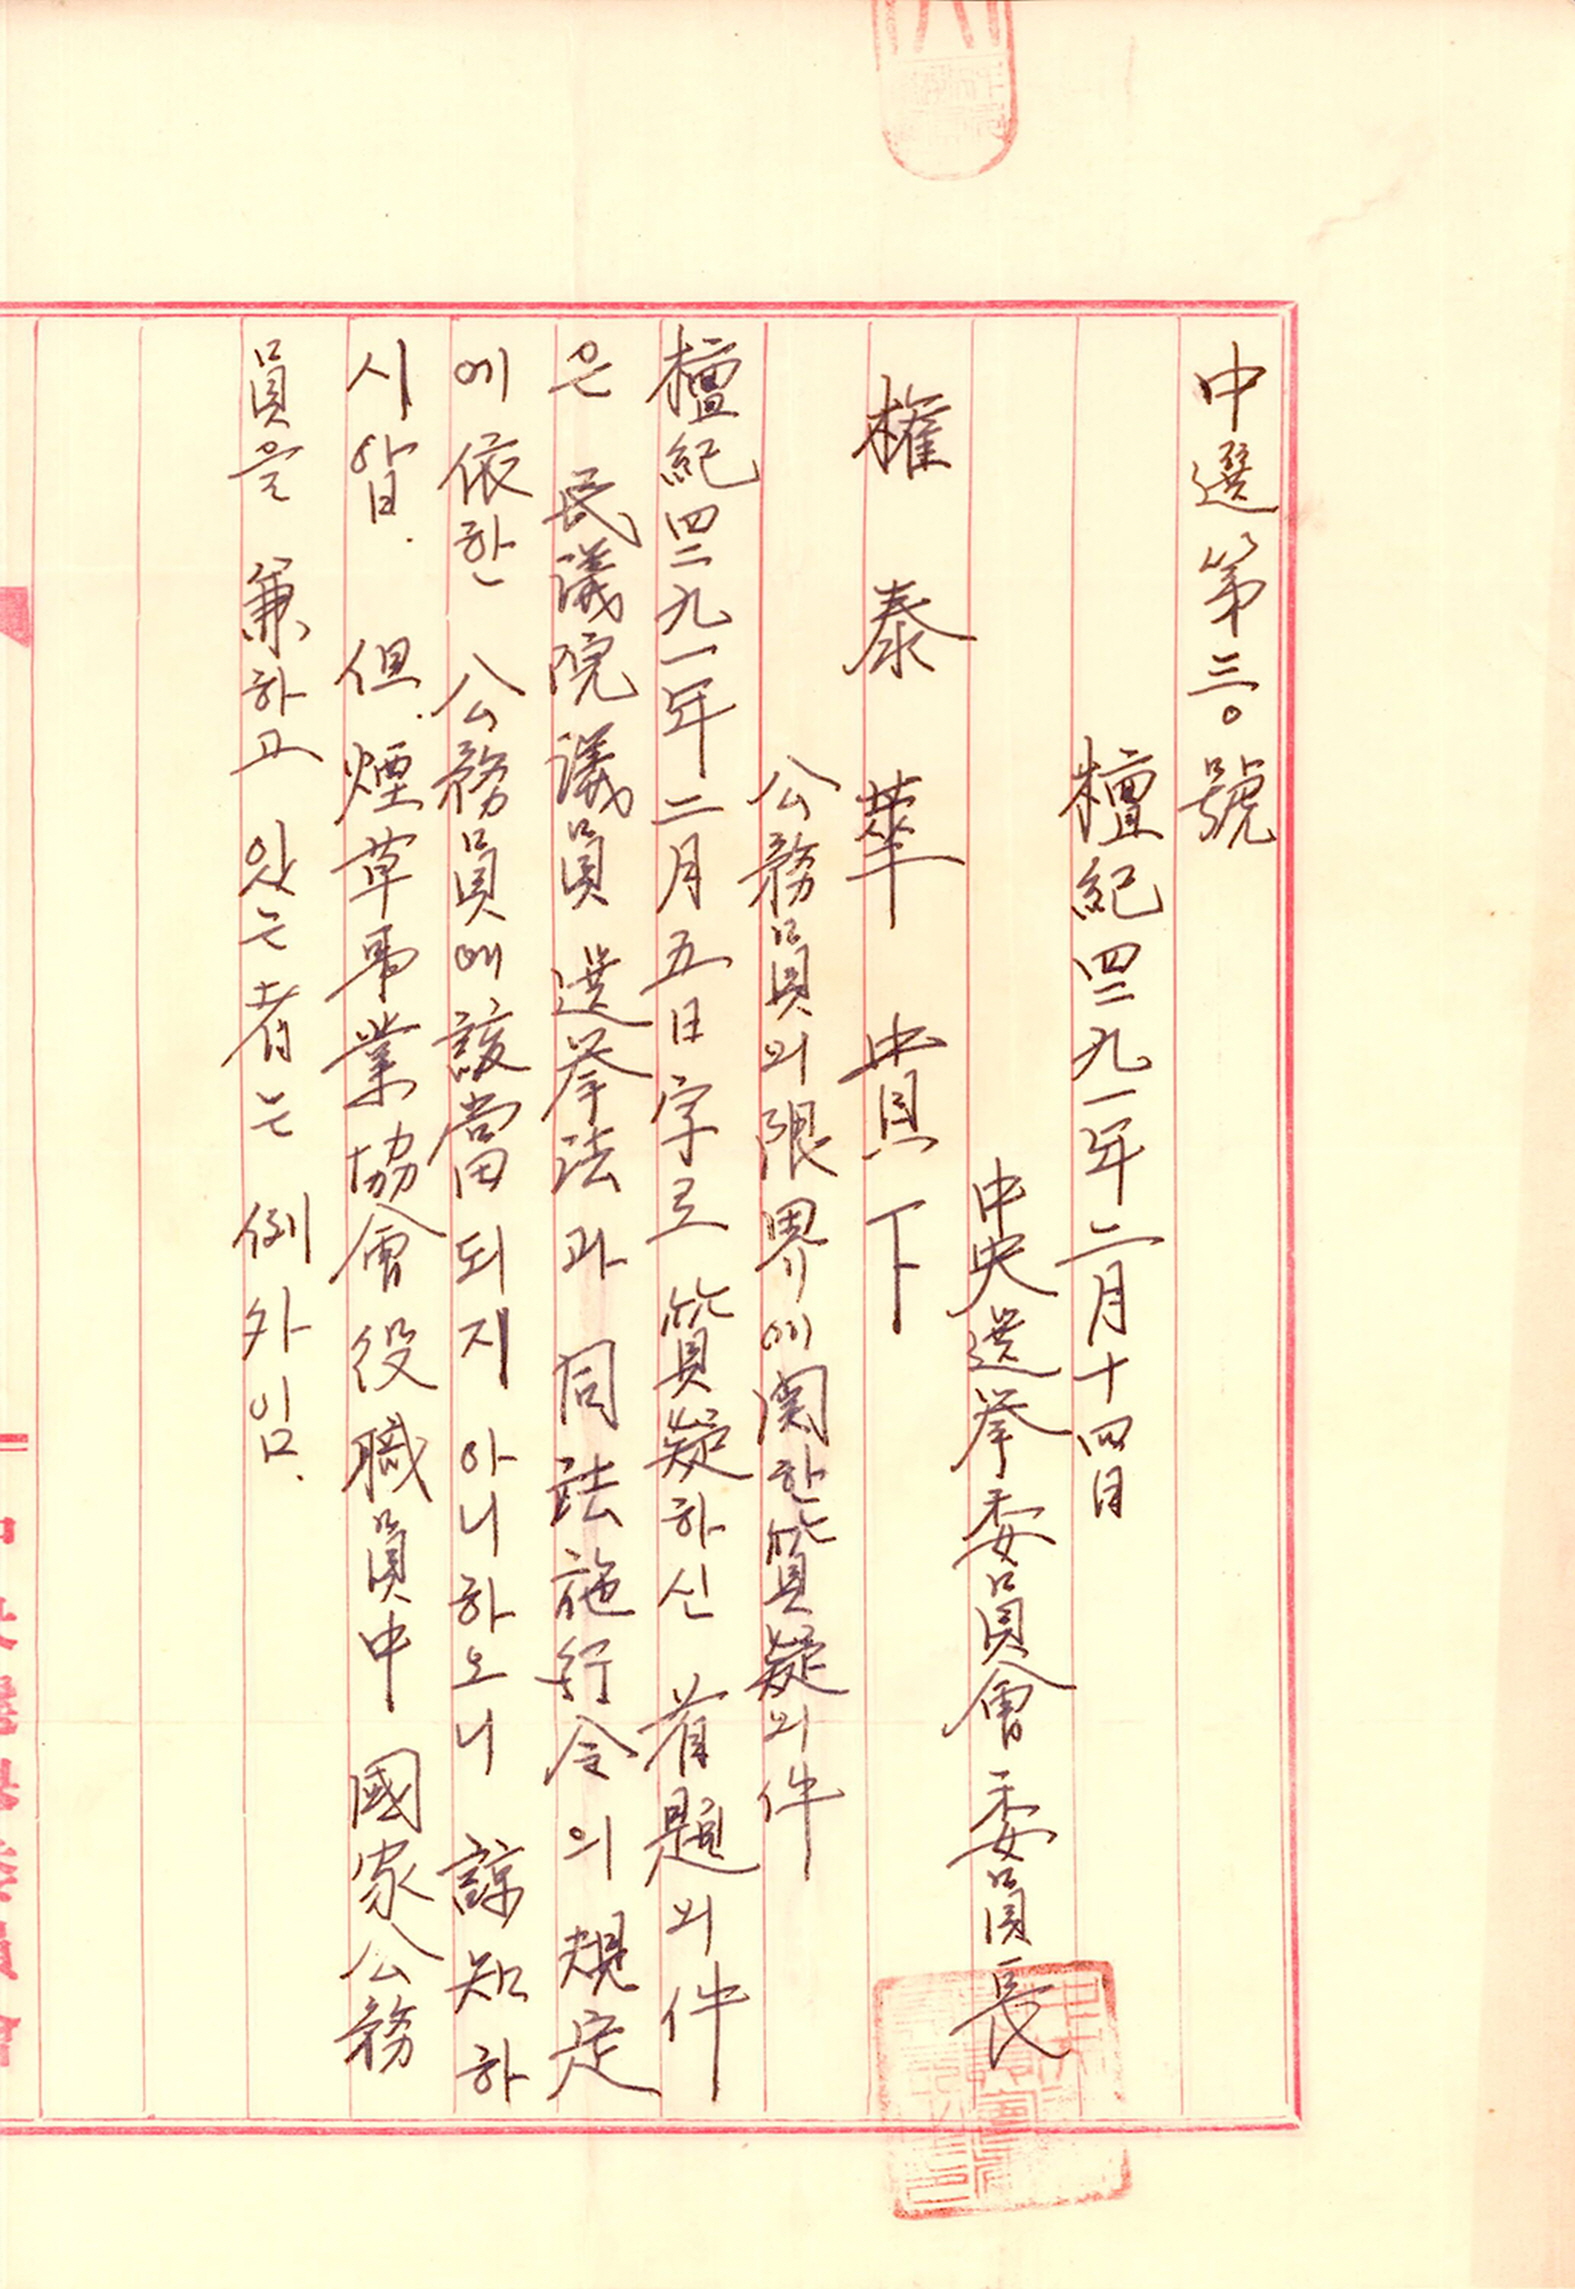 中選第三〇號
檀紀四二九一年二月十四日
中央選挙委員會委員長
權泰華 貴下
公務員의限界에関한質疑의件
檀紀四二九一年二月五日字로 質疑하신 首題의件
은 民議院議員 選挙法과 同法施行令의 規定
에 依한 公務員에該當되지 아니하오니 諒知하
시압. 但. 煙草事業協會役職員中 國家公務
員을 兼하고 있는者는 例外임.